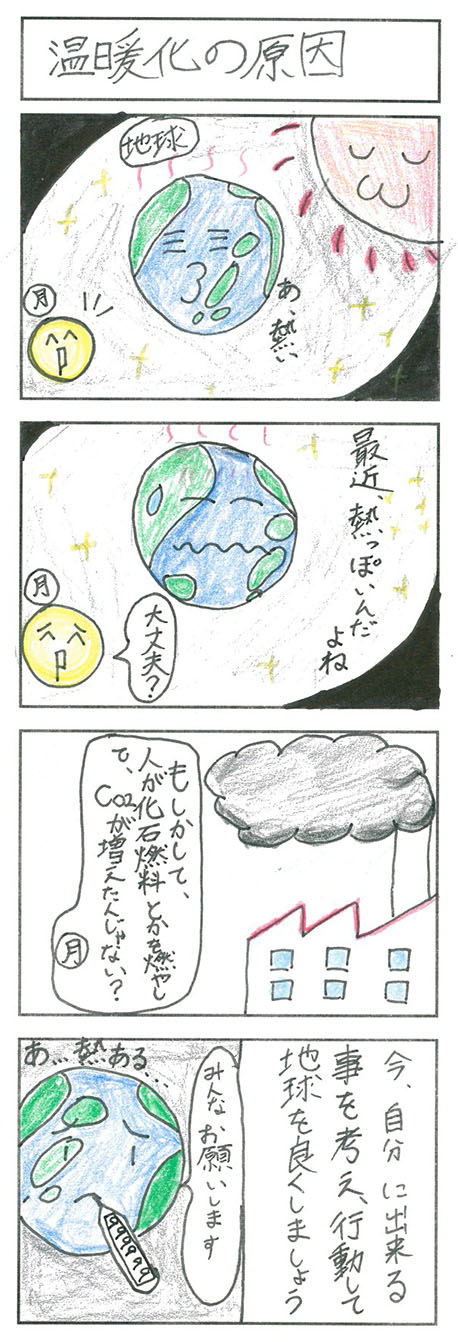 温暖化の原因
地球
あ、熱い
月
最近、熱っぽいんだ
よね
大丈夫?
月
もしかして、
人が化石燃料とかを燃やし
て、CO2が増えたんじゃない?
月
あ…熱ある…
999999
みんなお願いします
今、自分に出来る
事を考え、行動して
地球を良くしましょう